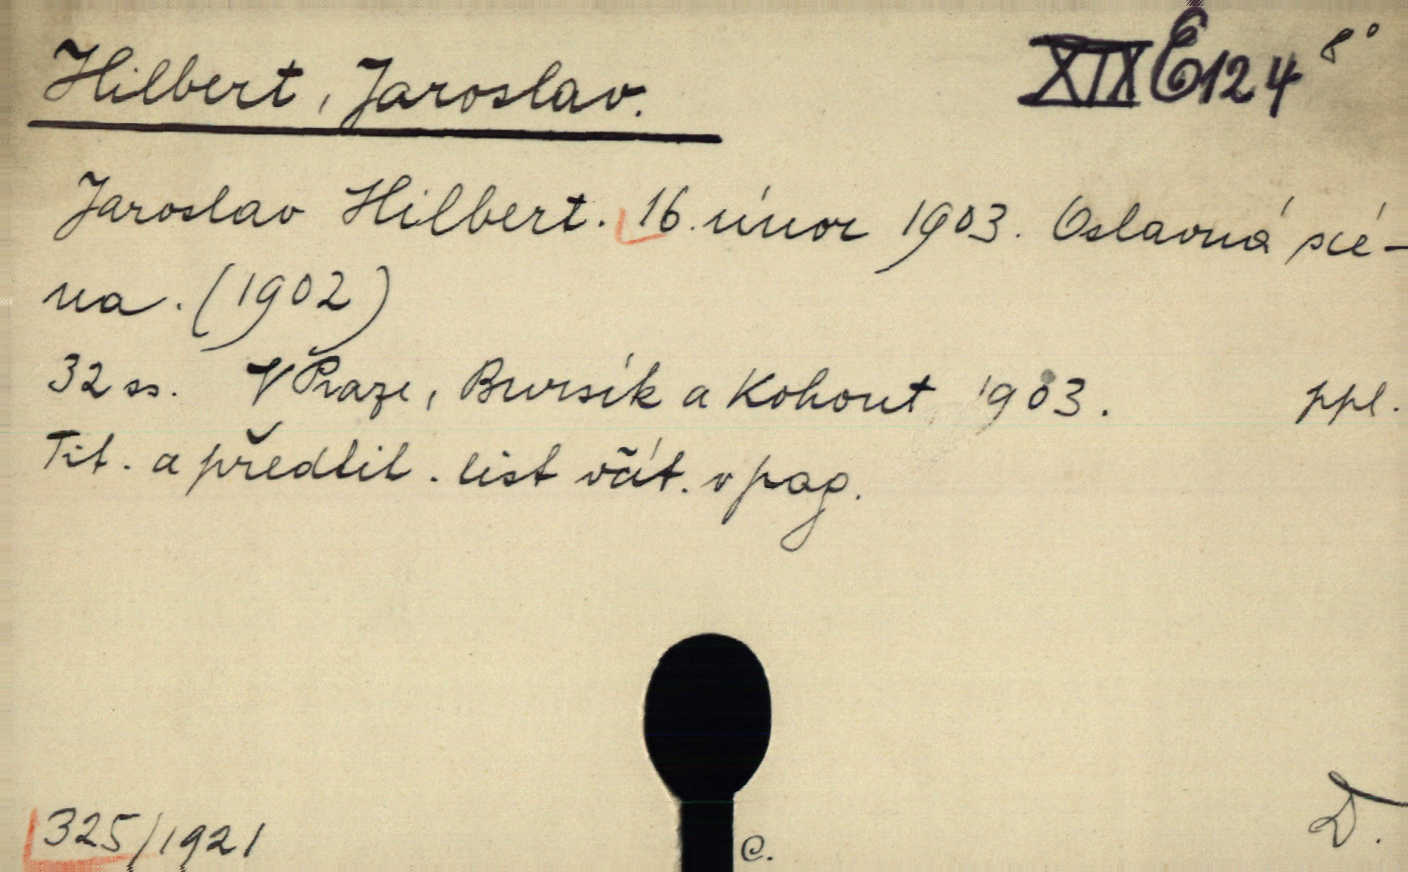 Hilbert, Jaroslav. XIX E 124 8°
Jaroslav Hilbert. 16. únor 1903. Oslavná scé-
na. (1902)
32 ss. V Praze, Bursík a Kohout 1903. ppl.
Tit. a předtit. list včít. v pag.
325/1921 C. D.